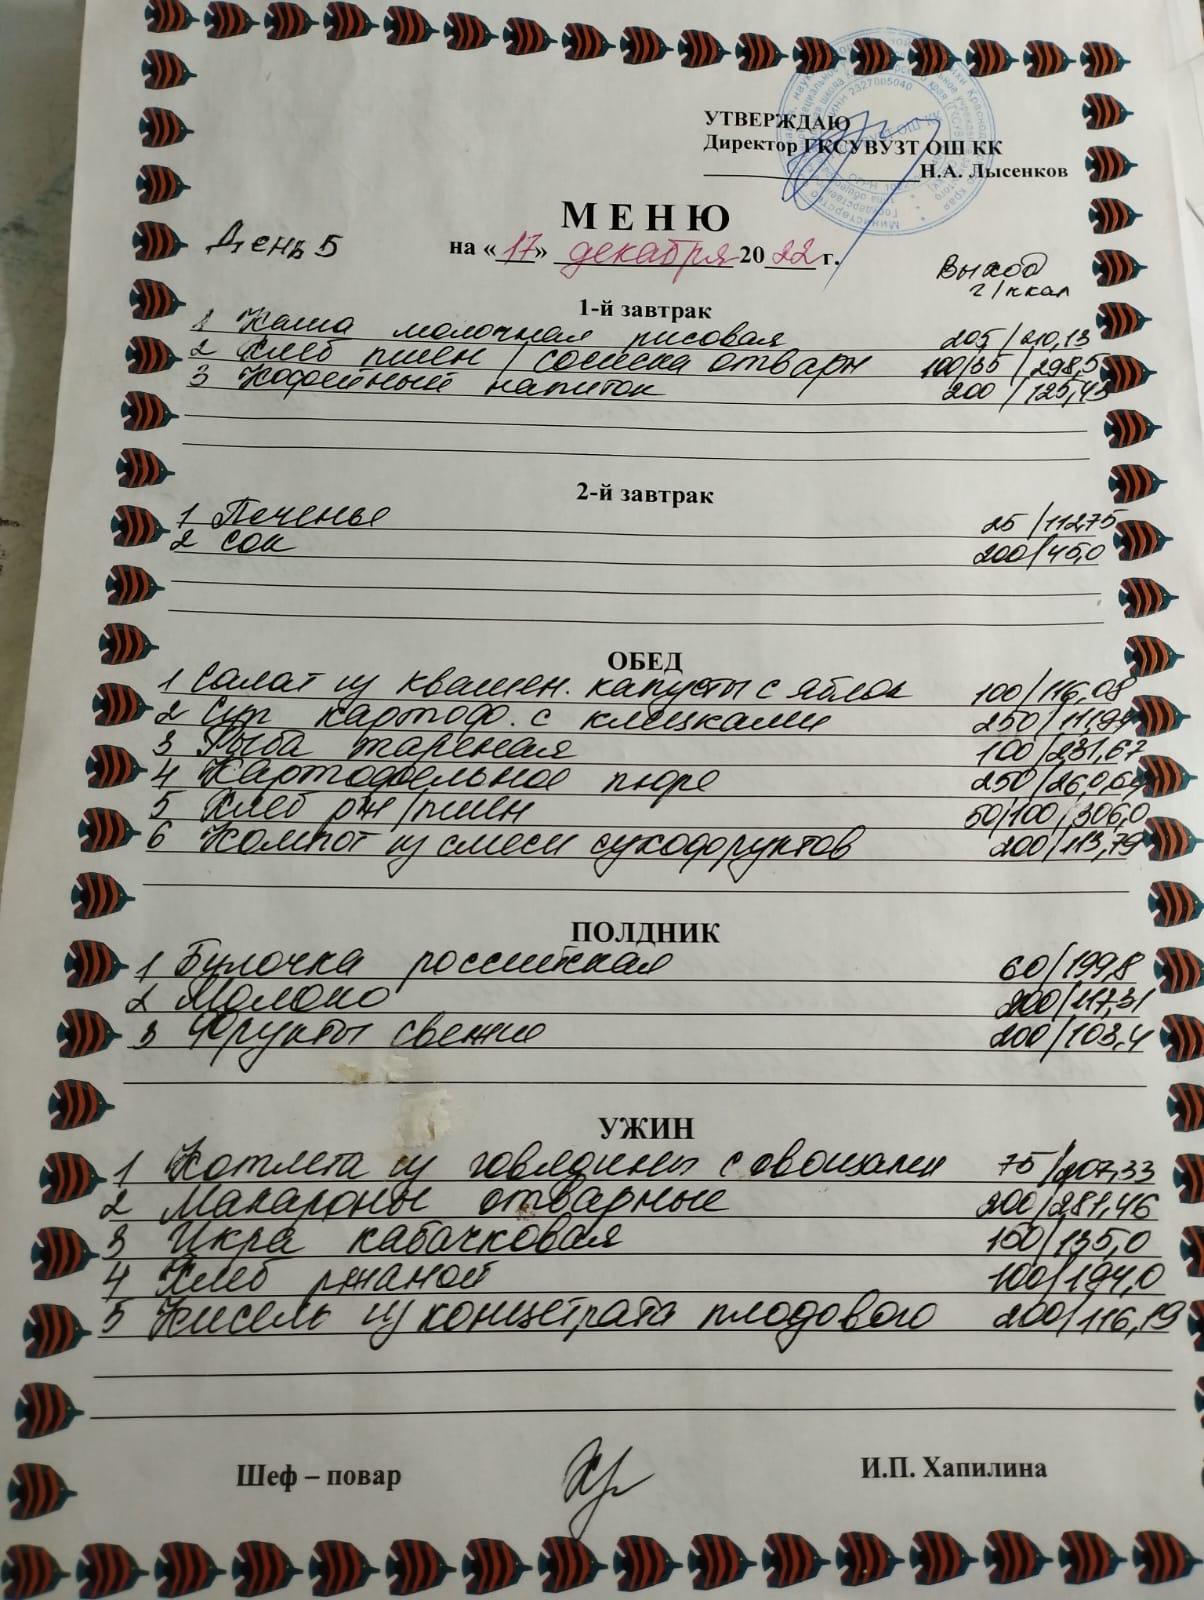 УТВЕРЖДАЮ
Директор ГКСУВУЗТ ОШ КК
Н.А. Лысенков
МЕНЮ
День 5 на «17» декабря 2022 г.
Выход
г/ккал
1-й завтрак
1 Каша молочная рисовая 205/210,13
2 Хлеб пшен/сосиска отварн 100/55/298,5
3 Кофейный напиток 200/125,45
2-й завтрак
1 Печенье 25/112,75
2 сок 200/45,0
ОБЕД
1 Салат из квашен. капусты с яблок 100/116,08
2 Суп картоф. с клецками 250/111,94
3 Рыба жареная 100/231,67
4 Картофельное пюре 250/260,64
5 Хлеб рж/пшен 50/100/306,0
6 Компот из смеси сухофруктов 200/113,79
ПОЛДНИК
1 Булочка российская 60/199,8
2 Молоко 200/117,31
3 Фрукты свежие 200/103,4
УЖИН
1 Котлета из говядины с овощами 75/207,33
2 Макароны отварные 200/281,46
3 Икра кабачковая 150/135,0
4 Хлеб ржаной 100/194,0
5 Кисель из концетрата плодового 200/116,19
Шеф – повар И.П. Хапилина